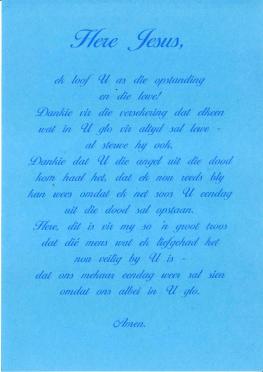 Here Jesus,
ek loof U as die opstanding
en die lewe!
Dankie vir die versekering dat elkeen
wat in U glo vir altyd sal lewe -
al sterwe hy ook.
Dankie dat U die angel uit die dood
kom haal het, dat ek nou reeds bly
kan wees omdat ek net soos U eendag
uit die dood sal opstaan.
Here, dit is vir my so 'n groot troos
dat dié mens wat ek liefgehad het
nou veilig by U is -
dat ons mekaar eendag weer sal sien
omdat ons albei in U glo.
Amen.